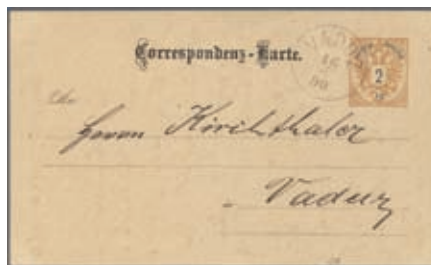 Correspondenz-Karte.
2
An
Herrn Kirchthaler
Vaduz